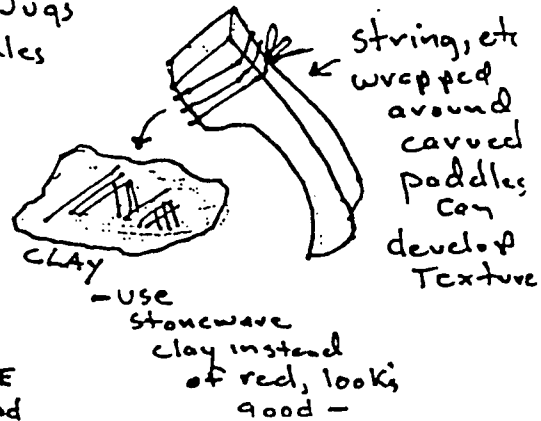 Jugs
les
string, etc
wrapped
around
carved
paddles,
can
develop
Texture
CLAY
- use
stoneware
clay instead
of red, look's
good -
E
od